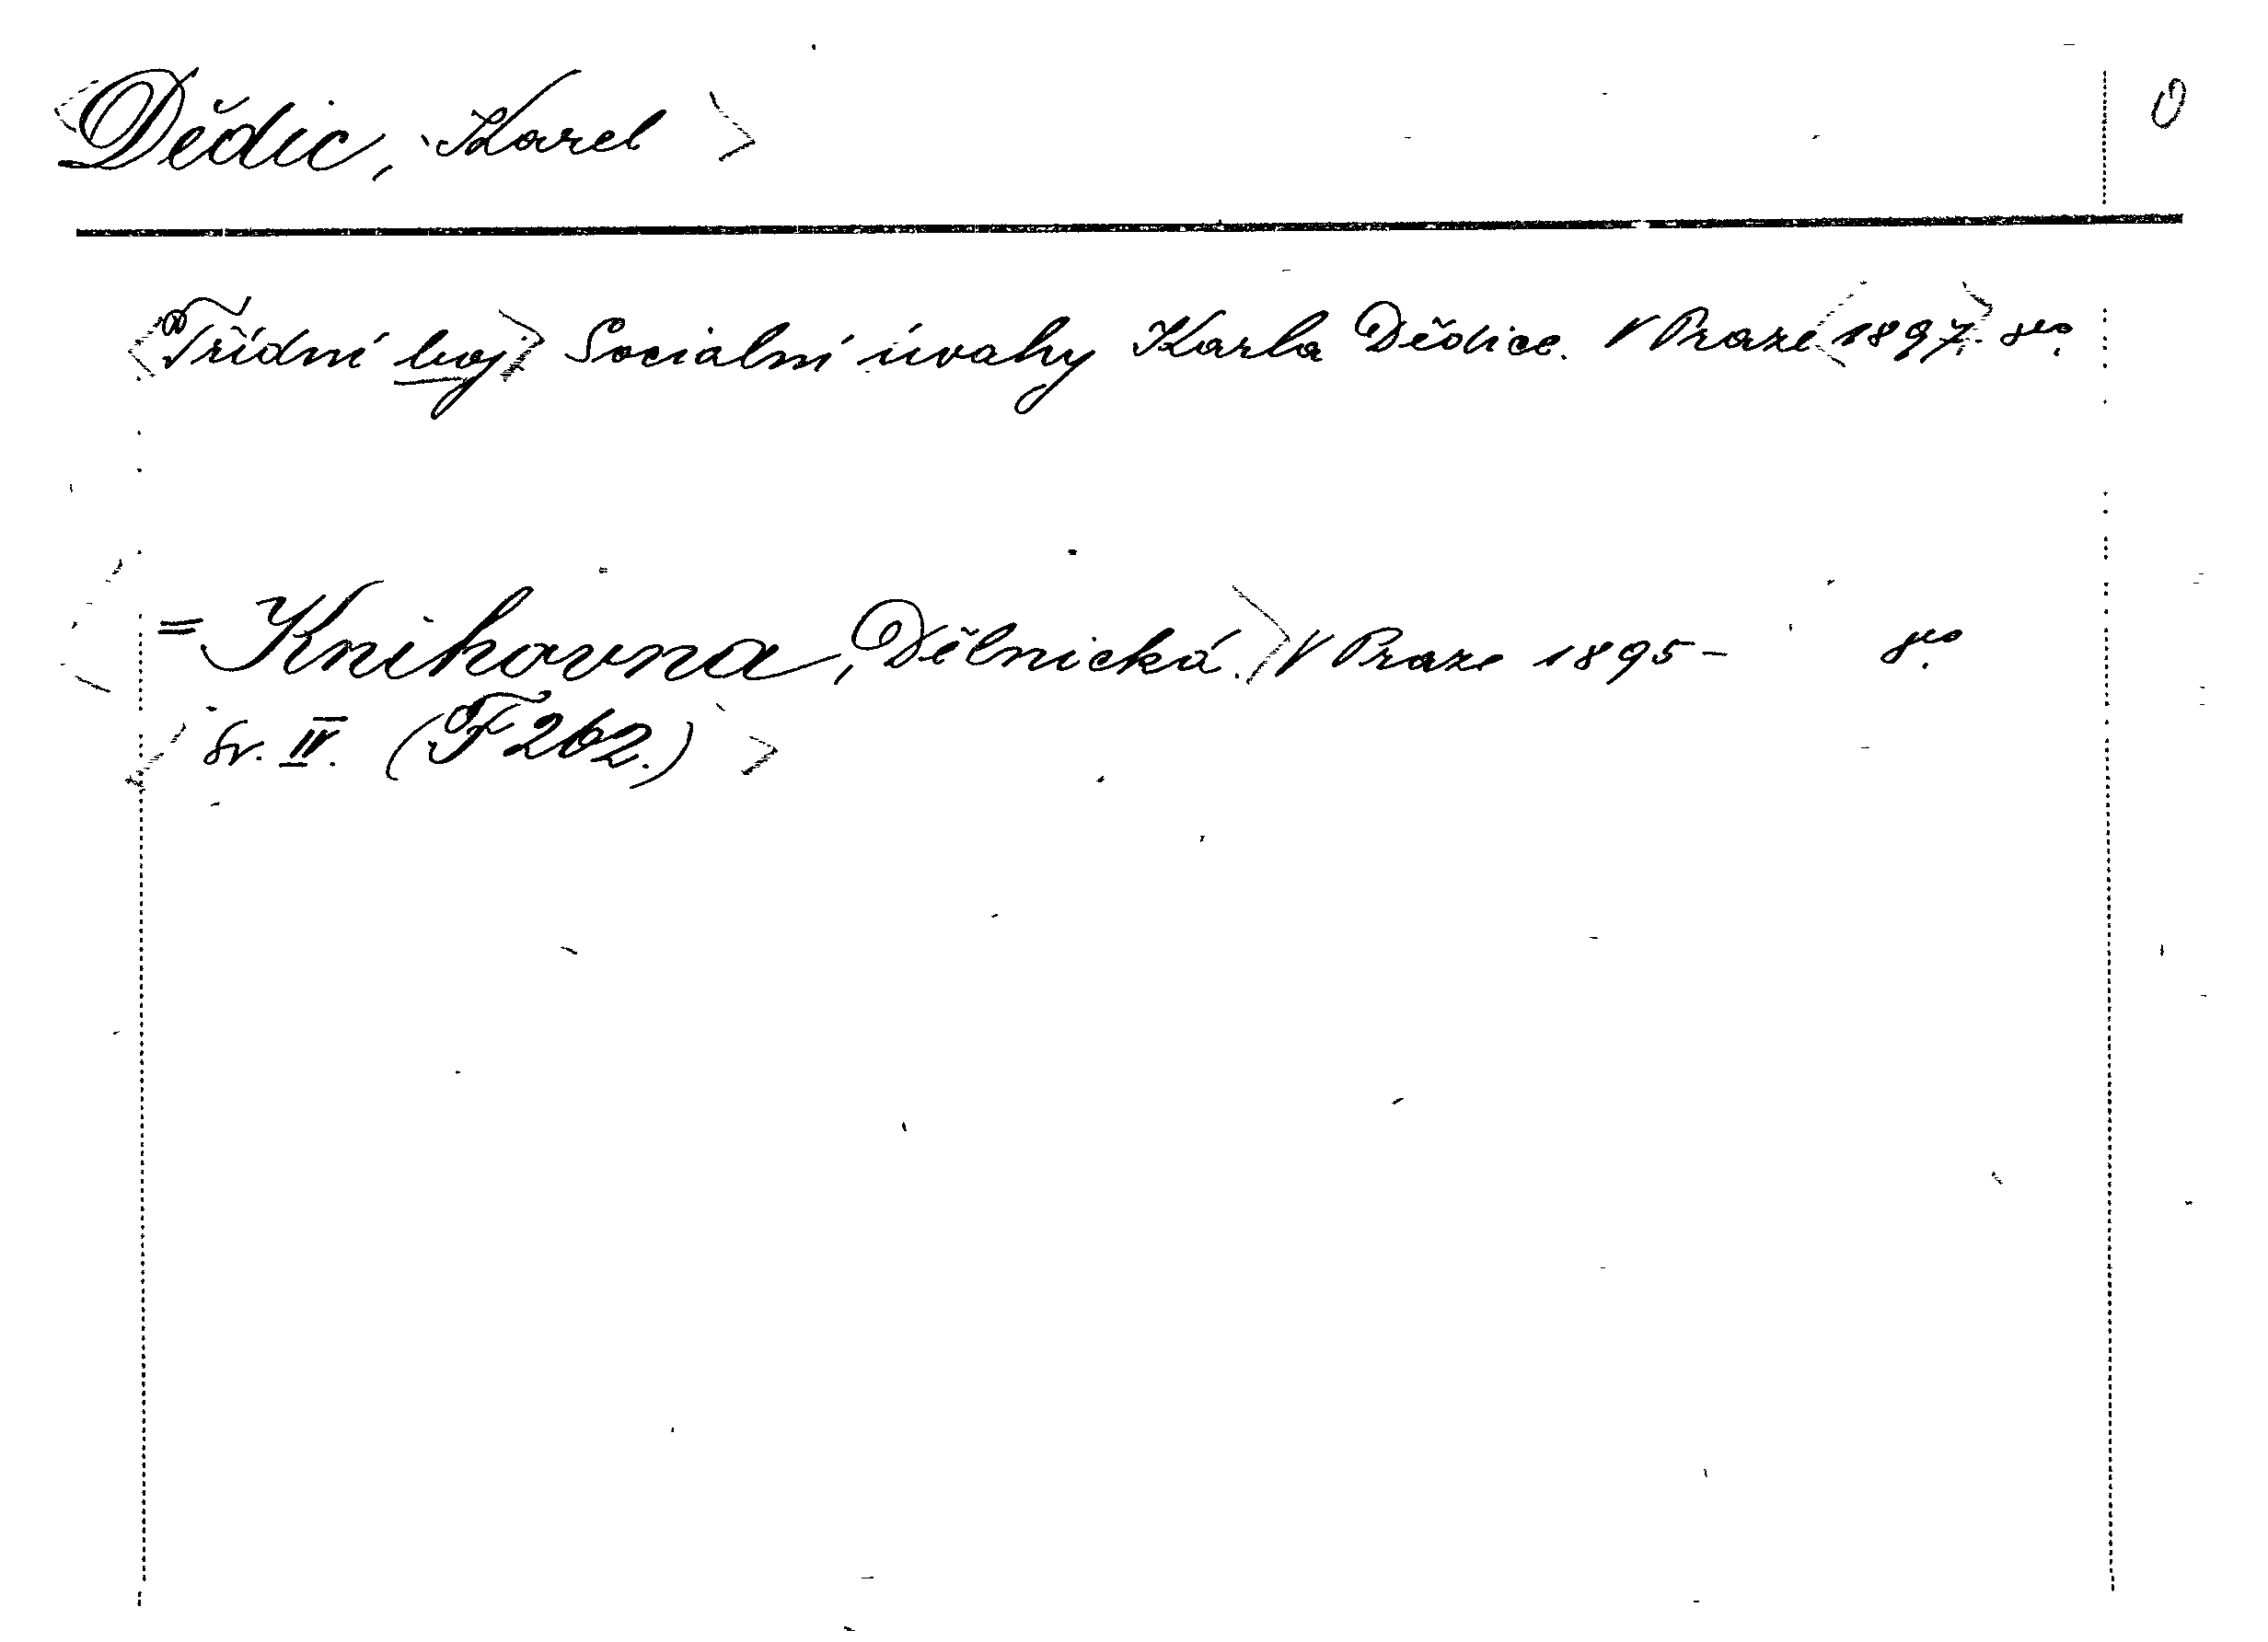 <Dědic, Karel> 0
<Třídní boj.> Socialní úvahy Karla Dědice. V Praze <1897.> 8vo.
= Knihovna, Dělnická.> V Praze 1895- 8vo.
Sv. IV. (F 262.)>